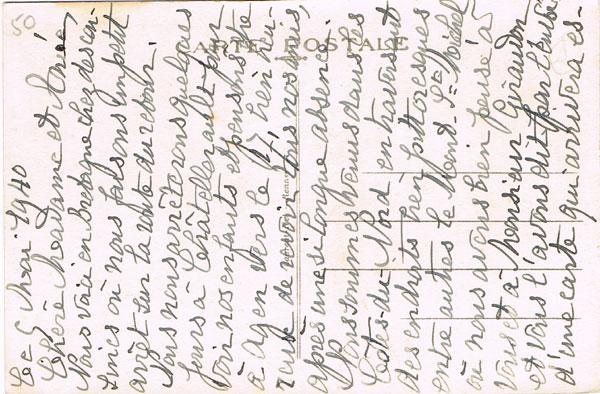 50
CARTE POSTALE
Ce 5 Mai 1940
Chère Madame et Amie,
Nous voici en Bretagne chez des cou-
sines où nous faisons un petit
arrêt sur la route du retour.
Nous nous arrêterons quelques
jours à Châtellerault pour
voir nos enfants et pensons être
à Agen vers le 17, bien heu-
reux de revoir tous nos amis,
après une si longue absence.
Nous sommes venus dans les
Côtes-du-Nord en traversant
des endroits bien pittoresques
entre autres le Mont-St-Michel
où nous avons bien pensé à
vous et à Monsieur
et vous l'avons dit par l'envoi
d'une carte qui arrivera es-